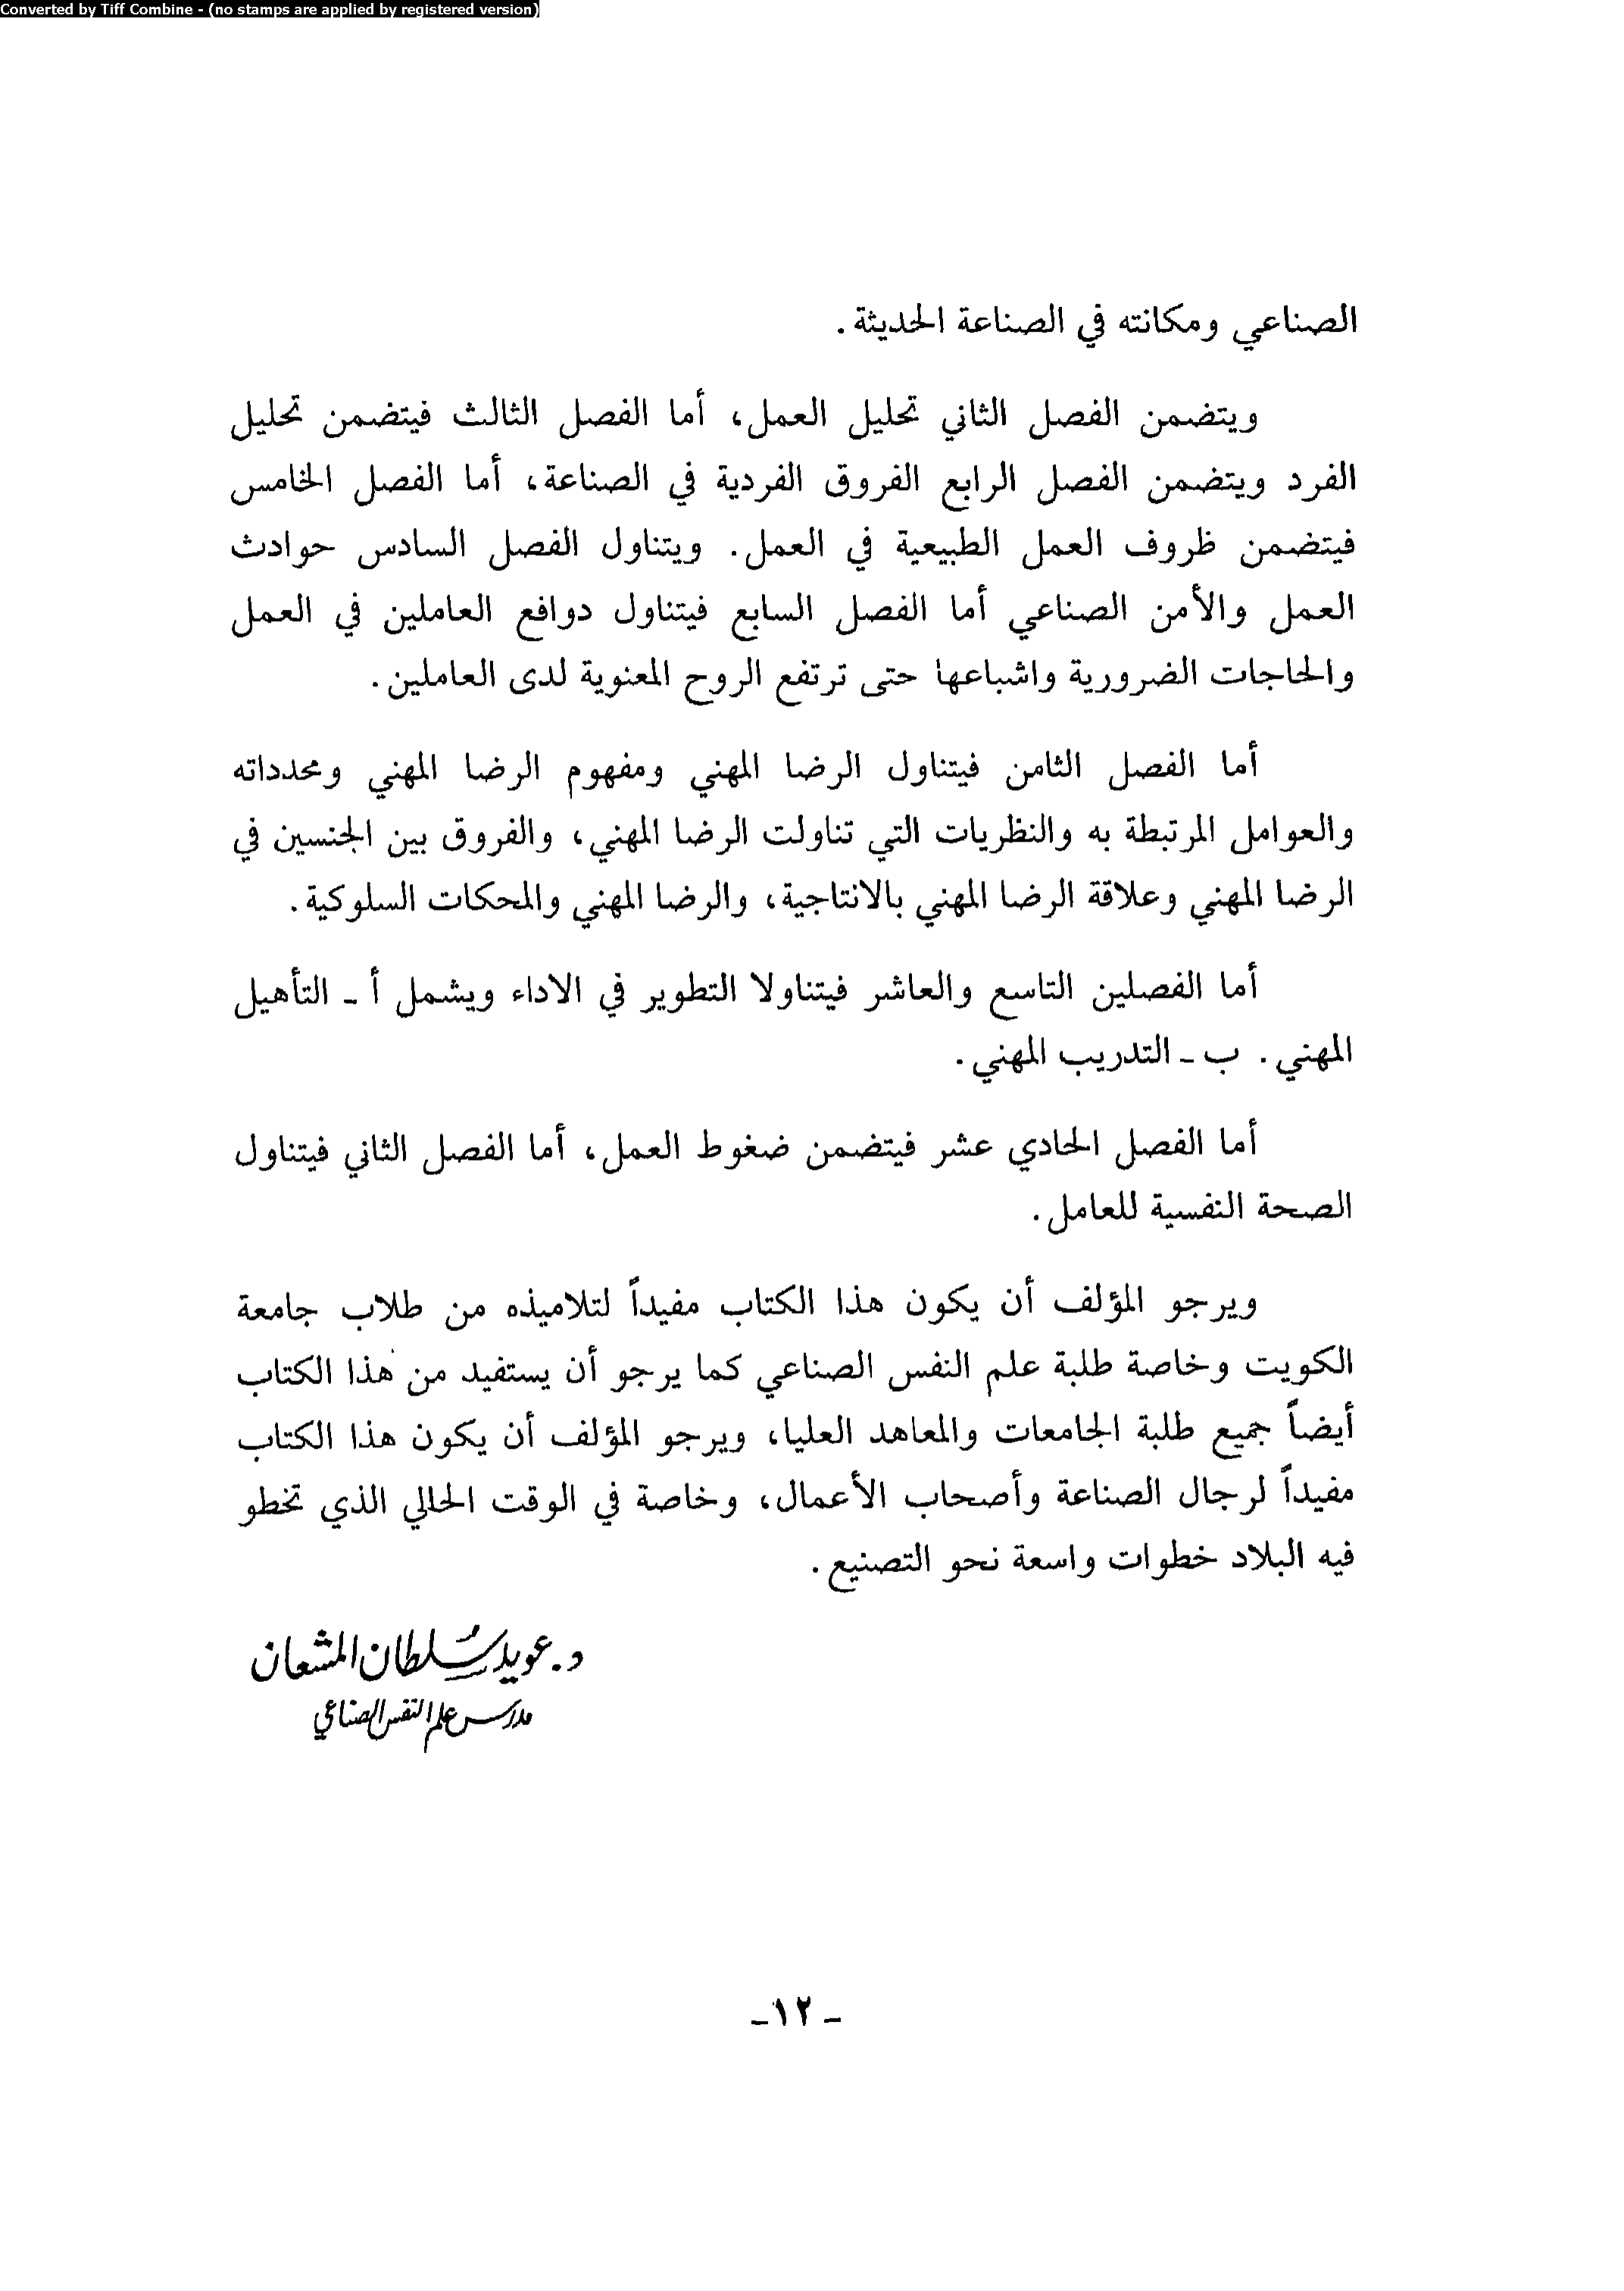 Converted by Tiff Combine - (no stamps are applied by registered version)
الصناعي ومكانته في الصناعة الحديثة.
ويتضمن الفصل الثاني تحليل العمل، أما الفصل الثالث فيتضمن تحليل
الفرد ويتضمن الفصل الرابع الفروق الفردية في الصناعة، أما الفصل الخامس
فيتضمن ظروف العمل الطبيعية في العمل. ويتناول الفصل السادس حوادث
العمل والأمن الصناعي أما الفصل السابع فيتناول دوافع العاملين في العمل
والحاجات الضرورية واشباعها حتى ترتفع الروح المعنوية لدى العاملين.
أما الفصل الثامن فيتناول الرضا المهني ومفهوم الرضا المهني ومحدداته
والعوامل المرتبطة به والنظريات التي تناولت الرضا المهني، والفروق بين الجنسين في
الرضا المهني وعلاقة الرضا المهني بالانتاجية، والرضا المهني والمحكات السلوكية.
أما الفصلين التاسع والعاشر فيتناولا التطوير في الاداء ويشمل أ ـ التأهيل
المهني. ب ـ التدريب المهني.
أما الفصل الحادي عشر فيتضمن ضغوط العمل، أما الفصل الثاني فيتناول
الصحة النفسية للعامل.
ويرجو المؤلف أن يكون هذا الكتاب مفيداً لتلاميذه من طلاب جامعة
الكويت وخاصة طلبة علم النفس الصناعي كما يرجو أن يستفيد من هذا الكتاب
أيضاً جميع طلبة الجامعات والمعاهد العليا، ويرجو المؤلف أن يكون هذا الكتاب
مفيداً لرجال الصناعة وأصحاب الأعمال، وخاصة في الوقت الحالي الذي تخطو
فيه البلاد خطوات واسعة نحو التصنيع.
د. عويد سلطان المشعان
مدرس علم النفس الصناعي
ـ ١٢ـ